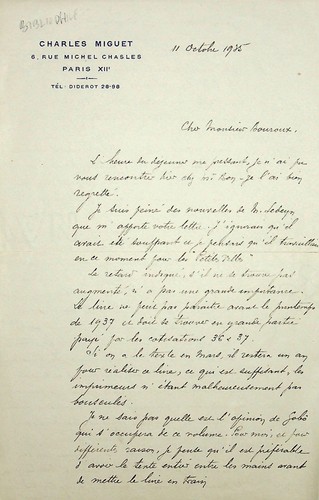 CHARLES MIGUET
6, RUE MICHEL CHASLES
PARIS XIIe
TÉL: DIDEROT 28-88
11 Octobre 1935
Cher Monsieur Couroux.
L'heure du déjeuner me pressant, je n'ai pu
vous rencontrer hier chez Mr Bon. Je l'ai bien
regretté.
Je suis peiné des nouvelles de M.
que m'apporte votre lettre. J'ignorais qu'il
avait été souffrant et je pensais qu'il travaillait
en ce moment pour les
Le retard indiqué, s'il ne se trouve pas
augmenté, n'a pas une grande importance.
Le livre ne peut pas paraître avant le printemps
de 1937 et doit se trouver en grande partie
payé par les cotisations 36 & 37.
Si on a le texte en Mars, il restera un an
pour réaliser ce livre, ce qui est suffisant, les
imprimeurs n'étant malheureusement pas
bousculés.
Je ne sais pas quelle est l'opinion de Jobô
qui s'occupera de ce volume. Pour moi, et pour
différentes raisons, je pense qu'il est préférable
d'avoir le texte entier entre les mains avant
de mettre le livre en train